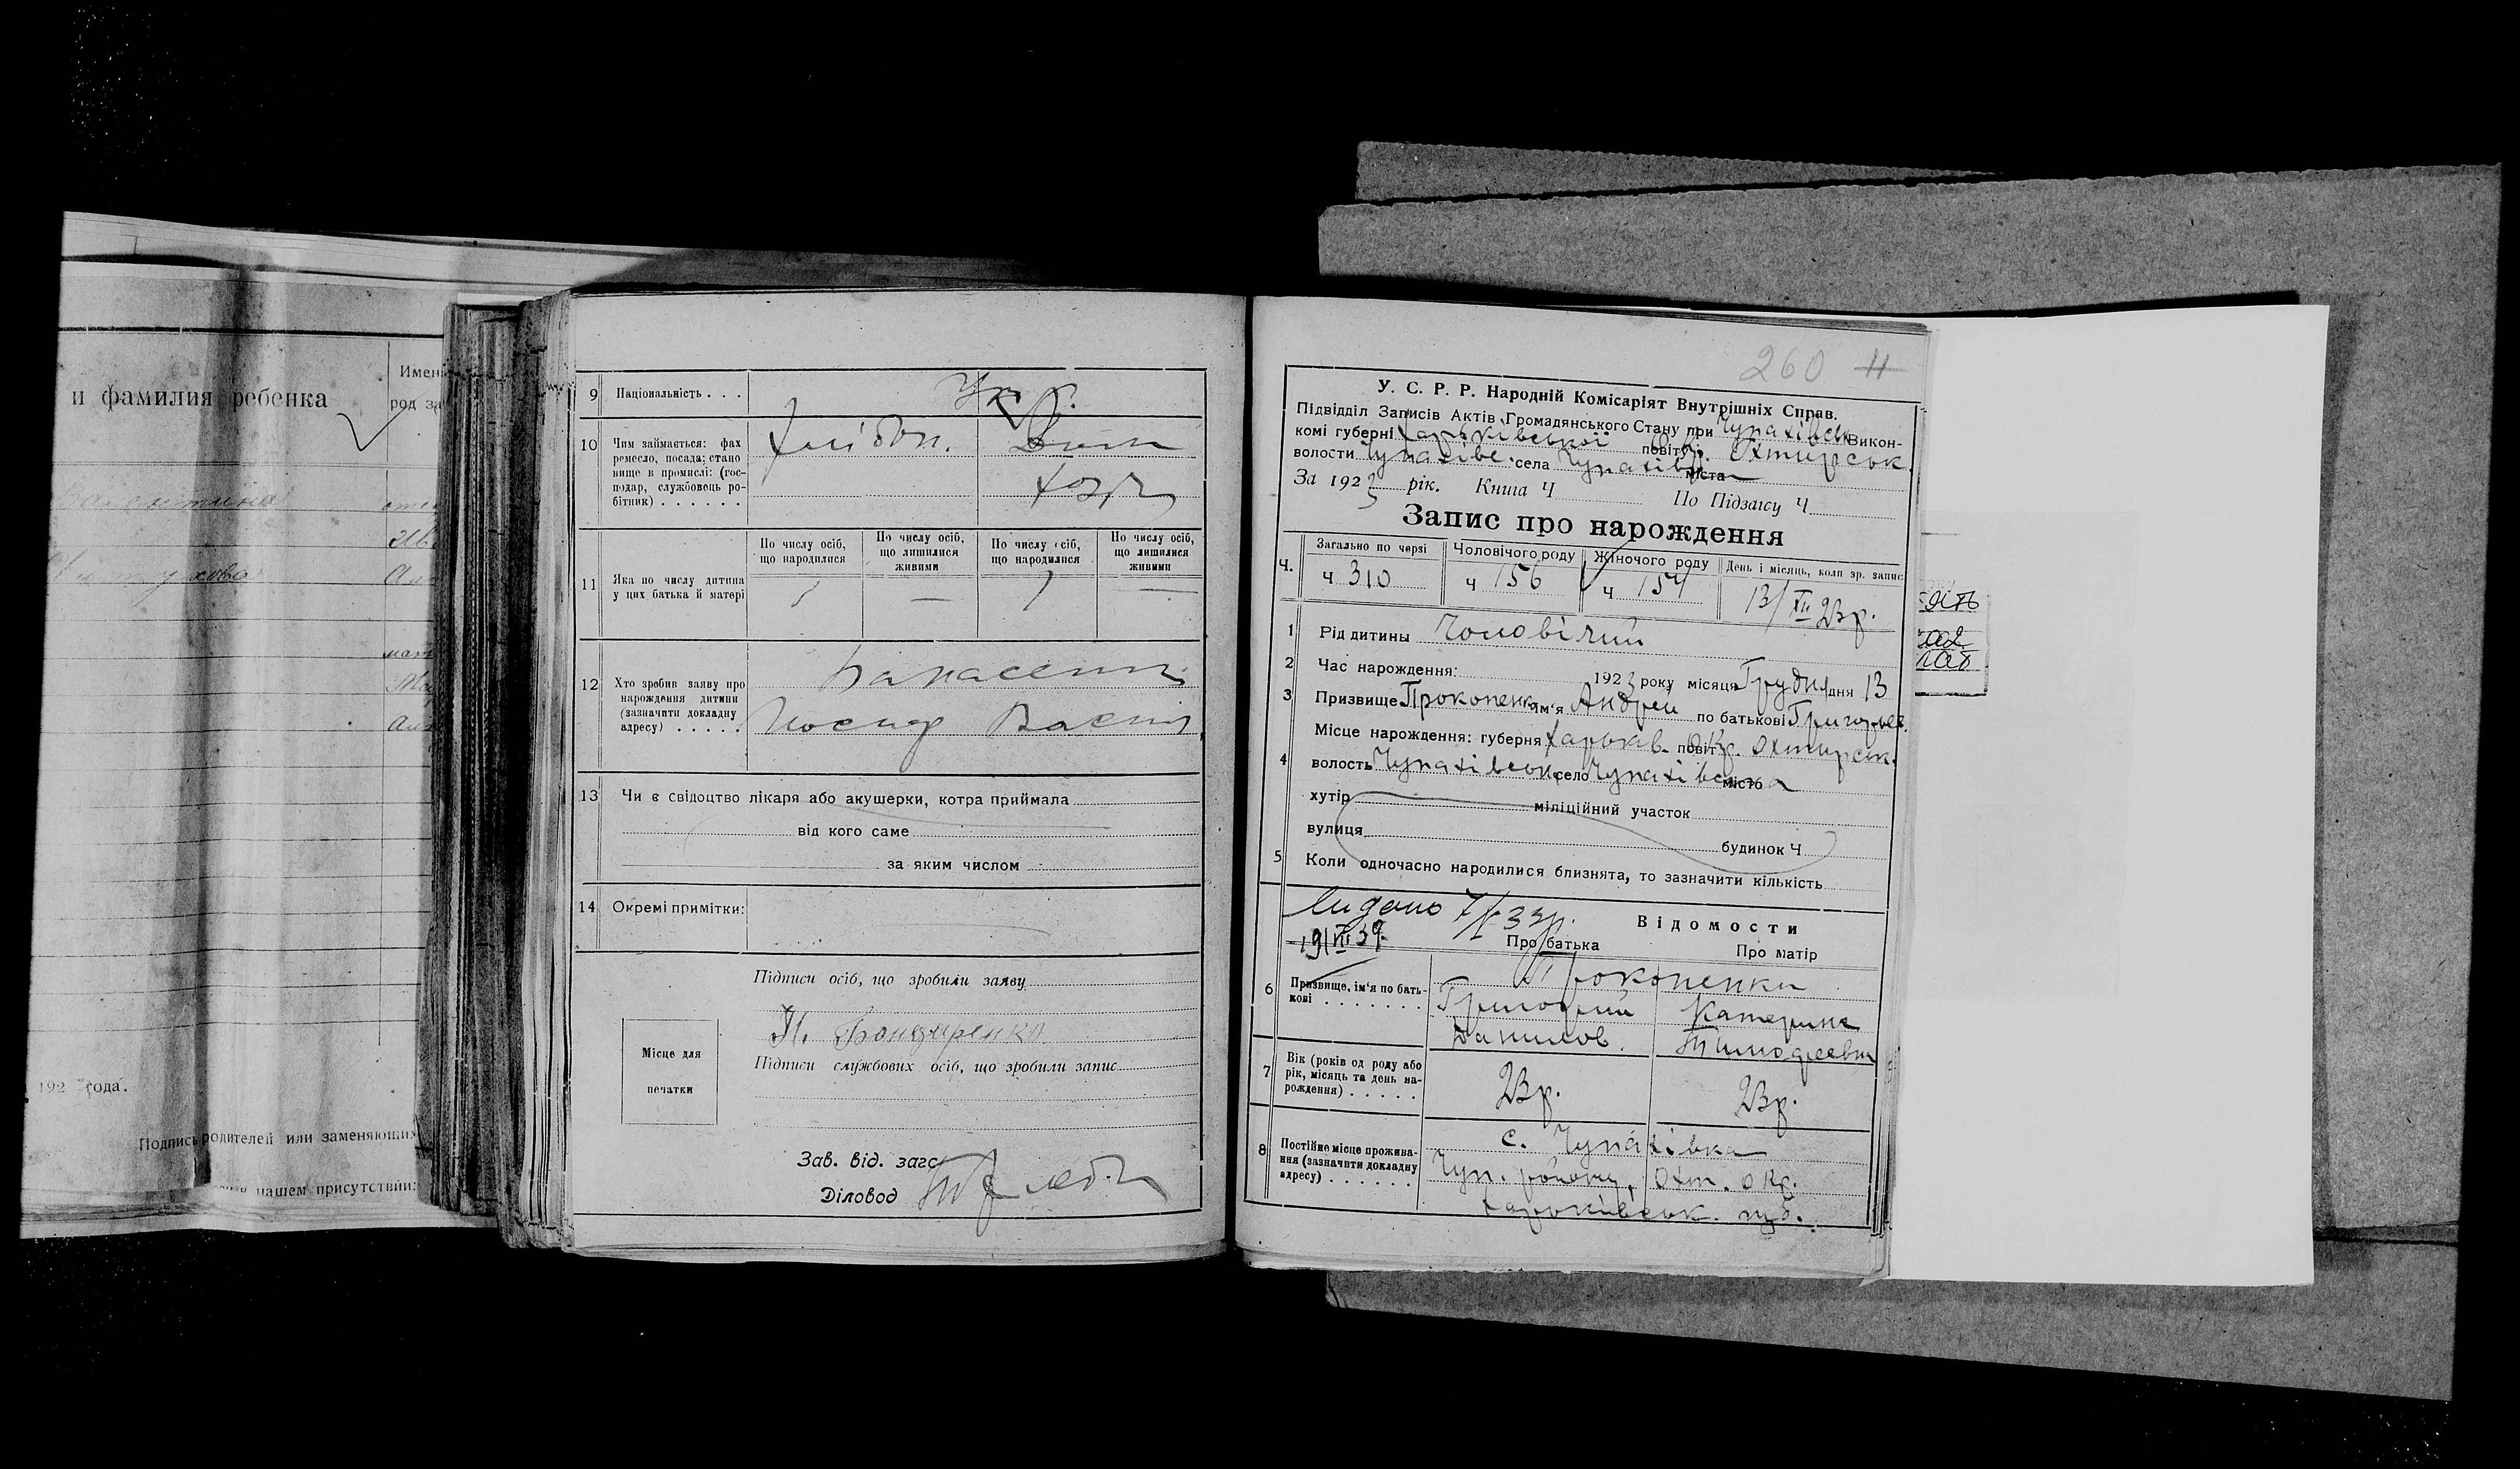 и фамилия ребенка
Имен
род за
192 года.
Подпись родителей или заменяющих
в нашем присутствии:
9 Національність . . . Укр.
10 Чим займається: фах
ремесло, посада; стано
вище в промислі: (гос-
подар, службовець ро-
бітник) . . . . . .
хлібоп.
Дом
хозя
11 Яка по числу дитина
у цих батька й матері
По числу осіб,
що народилися
По числу осіб,
що лишилися
живими
По числу осіб,
що народилися
По числу осіб,
що лишилися
живими
1 — 1 —
12 Хто зробив заяву про
народження дитини
(зазначити докладну
адресу) . . . . .
13 Чи є свідоцтво лікаря або акушерки, котра приймала
від кого саме
за яким числом
14 Окремі примітки:
Підписи осіб, що зробили заяву
Бондаренко
Підписи службових осіб, що зробили запис
Місце для
печатки
Зав. від. загс
Діловод
260 11
У. С. Р. Р. Народній Комісаріят Внутрішніх Справ.
Підвідділ Записів Актів Громадянського Стану при Чупахівськ Викон-
комі губерні Харьківської повіт Окр. Охтирськ.
волости Чупахівс. села Чупахівка міста
За 1923 рік. Книга Ч По Підзагсу Ч
Запис про народження
Ч. Загально по черзі Чоловічого роду Жіночого роду День і місяць, коли зр. запис
ч 310 ч 156 ч 154 13/XII 23р.
1 Рід дитини Чоловічий
2 Час народження: 1923 року місяця Грудня дня 13
3 Призвище Прокопенко ім'я Андрей по батькові Григорьев.
4 Місце народження: губерня Харьків. повіт Окр. Охтирськ.
волость Чупахівськ село Чупахівка місто
хутір міліційний участок
вулиця будинок Ч
5 Коли одночасно народилися близнята, то зазначити кількість
Видано 7/X 33р.
19/VII 39. Відомости
Про батька Про матір
6 Призвище, ім'я по бать-
кові . . . . . . . .
Прокопенки
Григорий Катерина
Данилов. Тимофеевна
7 Вік (років од роду або
рік, місяць та день на-
родження) . . . . .
23р. 23р.
8 Постійне місце прожива-
ння (зазначити докладну
адресу) . . . . . .
с. Чупахівка
Чуп. району, Охт. окр.
Харьківськ. губ.